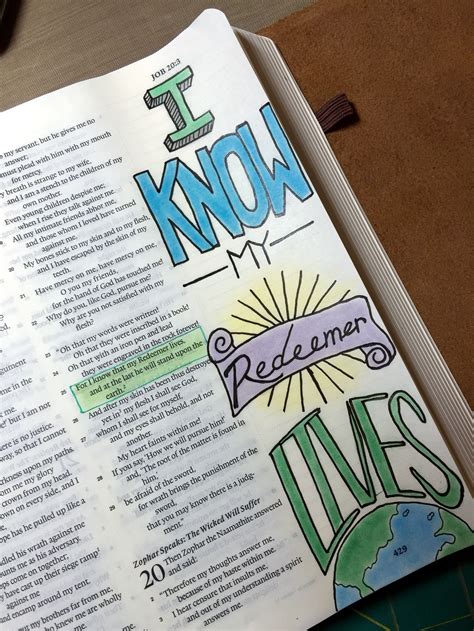 JOB 20:3
my servant, but he gives me no
answer;
must plead with him with my mouth
for mercy.
breath is strange to my wife,
and I am a stench to the children of my
own mother.
Even young children despise me;
when I rise they talk against me.
All my intimate friends abhor me,
and those whom I loved have turned
against me.
20 My bones stick to my skin and to my flesh,
and I have escaped by the skin of my
teeth.
21 Have mercy on me, have mercy on me,
for the hand of God has touched me!
22 Why do you, like God, pursue me?
Why are you not satisfied with my
flesh?
23 "Oh that my words were written!
Oh that they were inscribed in a book!
24 Oh that with an iron pen and lead
they were engraved in the rock forever!
25 For I know that my Redeemer lives,
and at the last he will stand upon the
earth.
26 And after my skin has been thus destroyed,
yet in my flesh I shall see God,
27 whom I shall see for myself,
and my eyes shall behold, and not
another.
My heart faints within me!
28 If you say, 'How we will pursue him!'
and, 'The root of the matter is found in
him,'
29 be afraid of the sword,
for wrath brings the punishment of the
sword,
that you may know there is a judg-
ment."
Zophar Speaks: The Wicked Will Suffer
20 Then Zophar the Naamathite answered
and said:
2 "Therefore my thoughts answer me,
because of my haste within me.
3 I hear censure that insults me,
and out of my understanding a spirit
answers me.
but I am not
there is no justice.
way, so that I cannot
rkness upon my paths
me my glory
crown from my head.
on every side, and I
hope has he pulled up like a
his wrath against me
me as his adversary.
come on together;
have cast up their siege ramp
and encamp around my tent.
my brothers far from me,
who knew me are wholly
I
KNOW
MY
Redeemer
LIVES
429